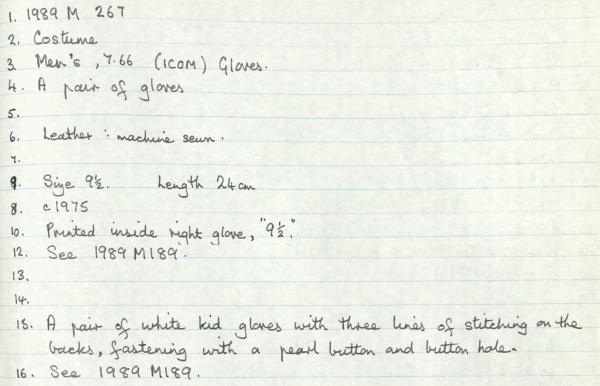 1. 1989 M 267
2. Costume
3. Men's, 7.66 (ICOM) Gloves.
4. A pair of gloves
5.
6. Leather : machine sewn.
7.
9. Size 9½. Length 24cm
8. c1975
10. Printed inside right glove, "9½".
12. See 1989 M189.
13.
14.
15. A pair of white kid gloves with three lines of stitching on the
backs, fastening with a pearl button and button hole.
16. See 1989 M189.